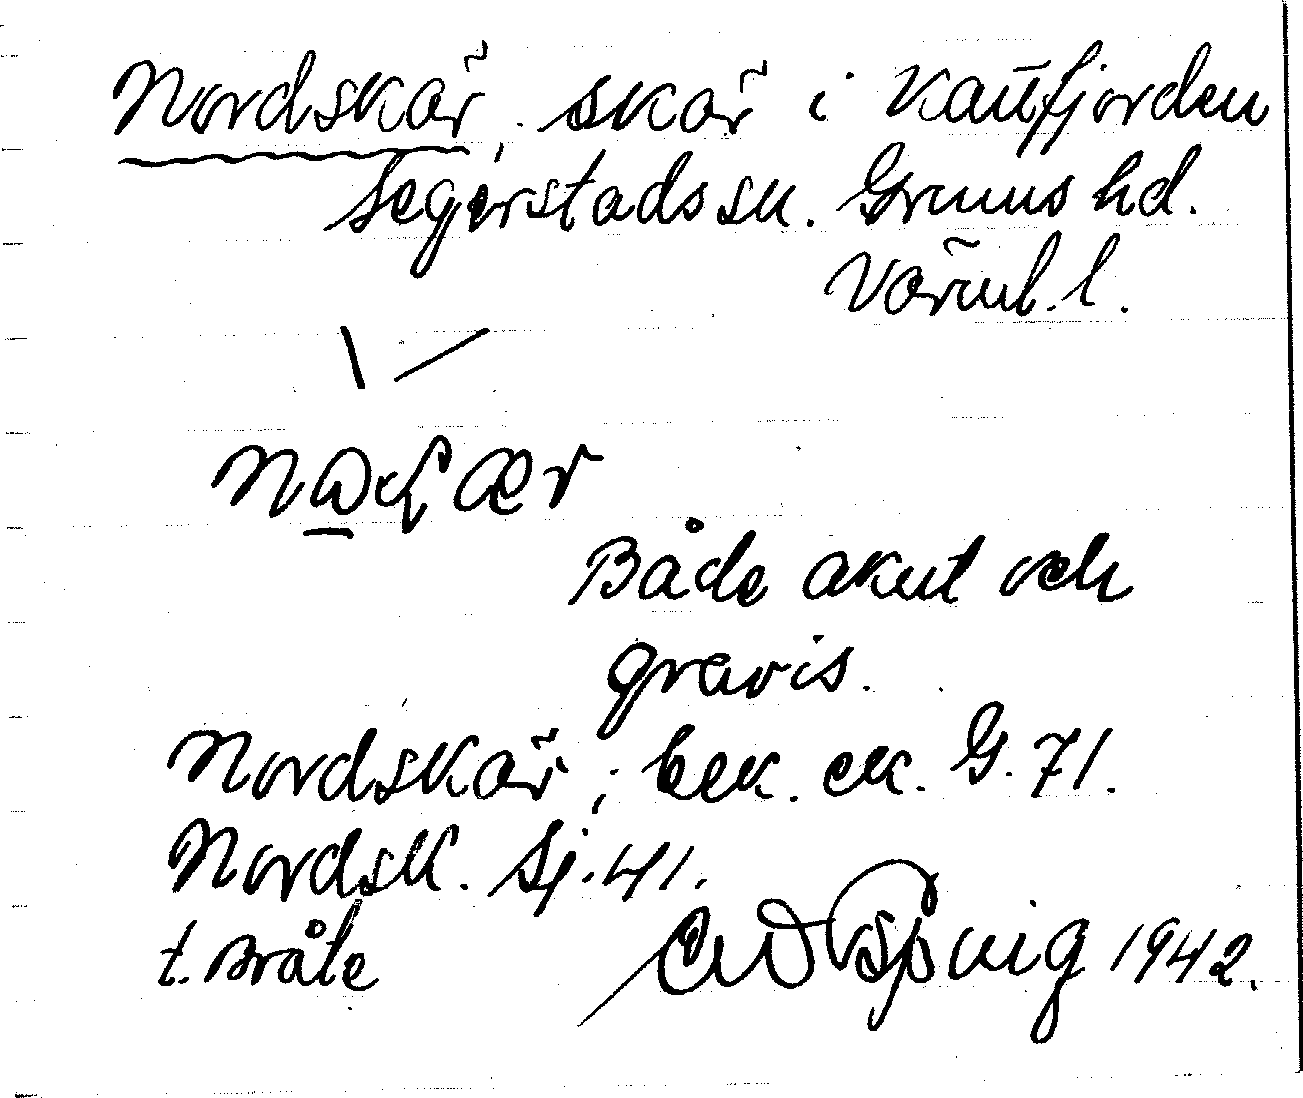 Nordskär, skär i Kattfjorden
Segerstads sn. Grums hd.
Värml. l.
Både akut och
gravis.
Nordskär; bek. ek. G. 71.
Nordsk. Sj. 41.
t. Bråte
1942.